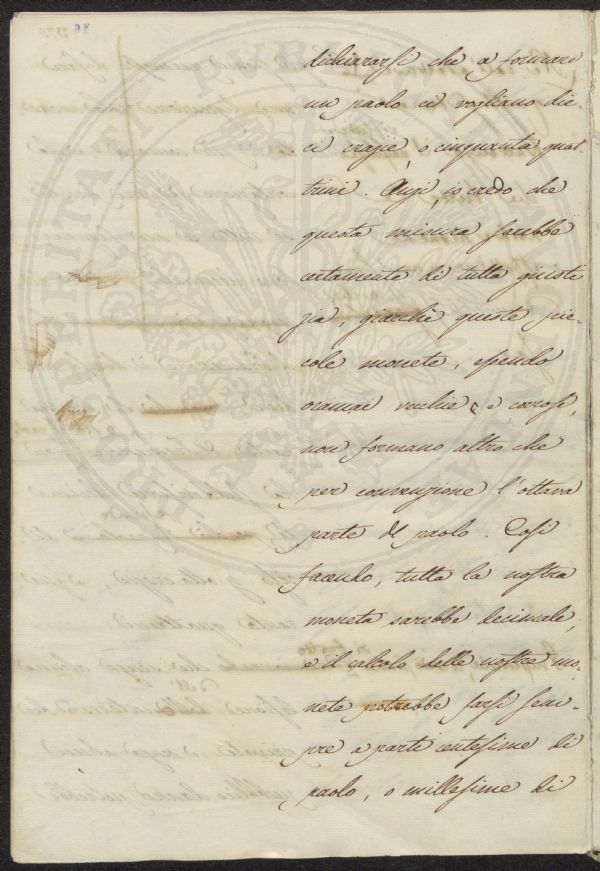 dichiararsi che a formare
un paolo ci vogliano die-
ci crazie, o cinquanta quat-
trini. Anzi, io credo che
questa misura sarebbe
certamente di tutta giusti
zia, giacchè queste pic-
cole monete, essendo
oramai vecchie e corrose,
non formano altro che
per convenzione l'ottava
parte del paolo. Così
facendo, tutta la nostra
moneta sarebbe decimale,
e il calcolo delle nostre mo-
nete potrebbe farsi sem-
pre a parti centesime di
paolo, o millesime di